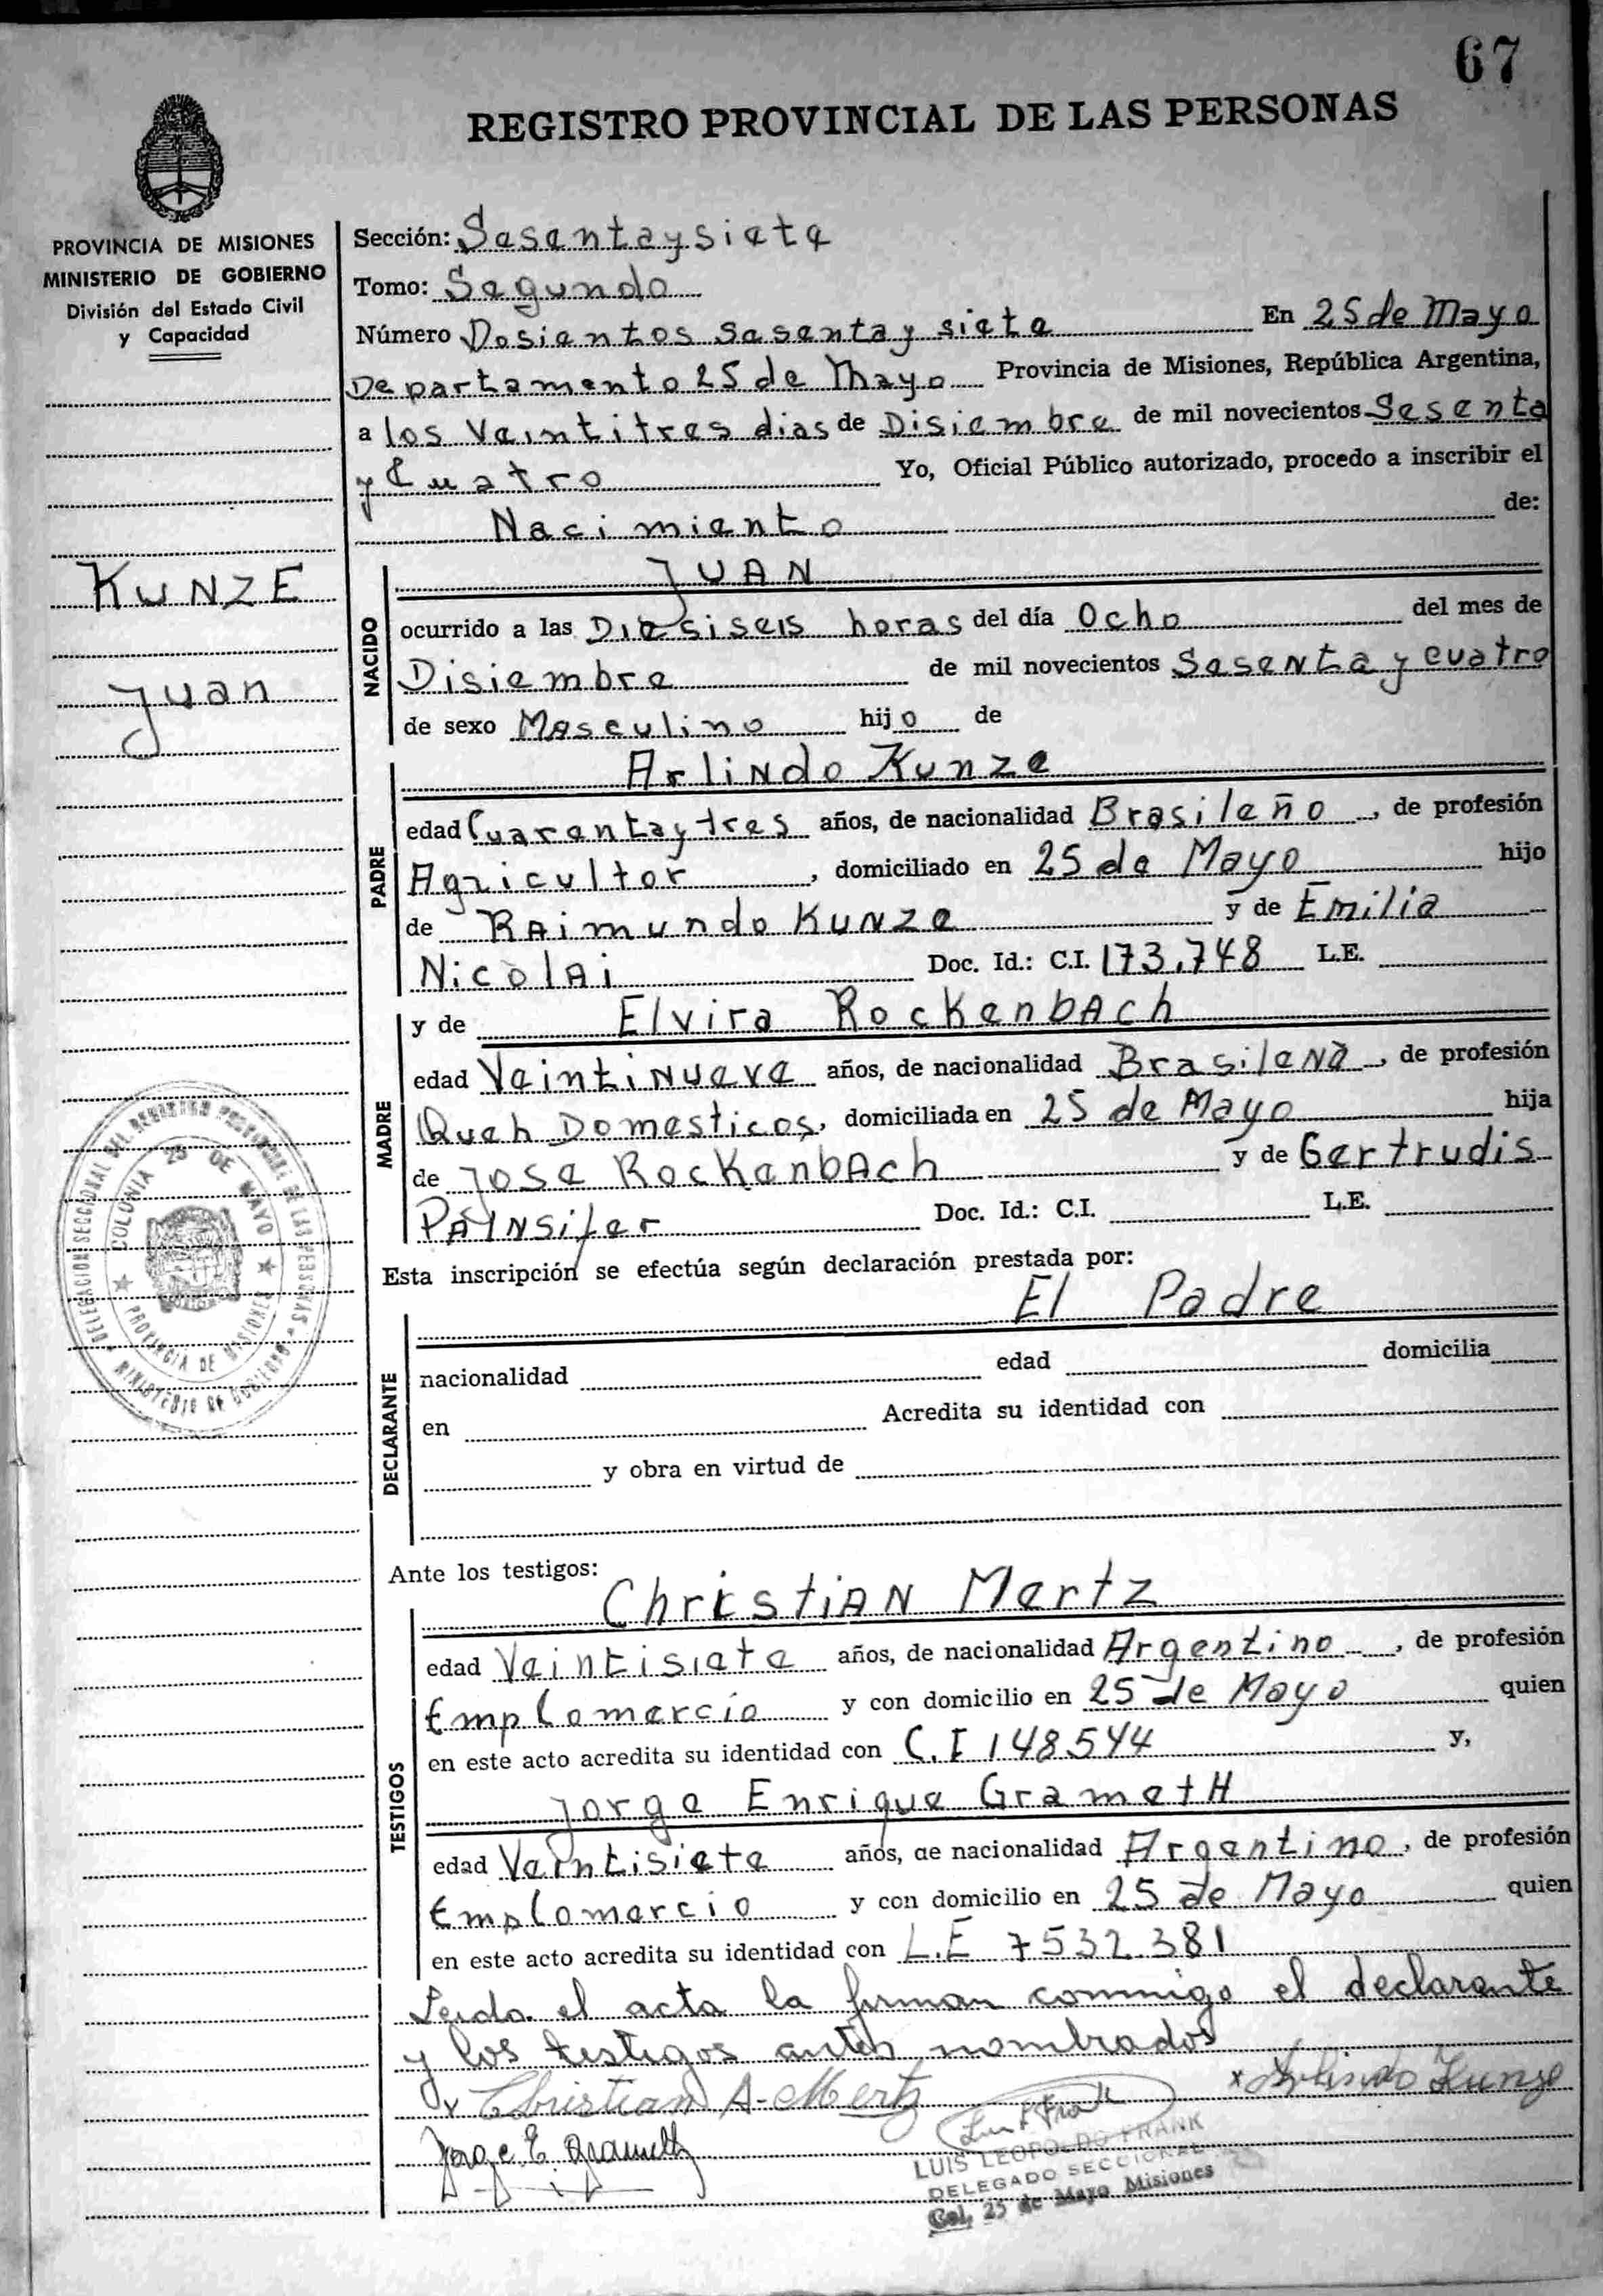 67
REGISTRO PROVINCIAL DE LAS PERSONAS
PROVINCIA DE MISIONES
MINISTERIO DE GOBIERNO
División del Estado Civil
y Capacidad
Sección: Sesentaysiete
Tomo: Segundo
Número Dosientos sesenta y siete En 25 de Mayo
Departamento 25 de Mayo Provincia de Misiones, República Argentina,
a los Veintitres dias de Disiembre de mil novecientos Sesenta
y Cuatro Yo, Oficial Público autorizado, procedo a inscribir el
Nacimiento de:
KUNZE
Juan
NACIDO
JUAN
ocurrido a las Diesiseis horas del día Ocho del mes de
Disiembre de mil novecientos Sesenta y cuatro
de sexo Masculino hijo de
PADRE
Arlindo Kunze
edad Cuarentaytres años, de nacionalidad Brasileño, de profesión
Agricultor, domiciliado en 25 de Mayo hijo
de Raimundo Kunze y de Emilia
Nicolai Doc. Id.: C.I. 173.748 L.E.
MADRE
y de Elvira Rockenbach
edad Veintinueve años, de nacionalidad Brasilena, de profesión
Queh Domesticos, domiciliada en 25 de Mayo hija
de Jose Rockenbach y de Gertrudis
Paynsifer Doc. Id.: C.I. L.E.
DELEGACION SECCIONAL DEL REGISTRO PROVINCIAL DE LAS PERSONAS
MINISTERIO DE GOBIERNO
COLONIA 25 DE MAYO
PROVINCIA DE MISIONES
Esta inscripción se efectúa según declaración prestada por:
DECLARANTE
El Padre
nacionalidad edad domicilia
en Acredita su identidad con
y obra en virtud de
Ante los testigos:
TESTIGOS
Christian Mertz
edad Veintisiete años, de nacionalidad Argentino, de profesión
Emp Comercio y con domicilio en 25 de Mayo quien
en este acto acredita su identidad con C.I 148544 y,
Jorge Enrique Grameth
edad Veintisiete años, de nacionalidad Argentino, de profesión
Emp Comercio y con domicilio en 25 de Mayo quien
en este acto acredita su identidad con L.E 7532.381
Leida el acta la firman conmigo el declarante
y los testigos antes nombrados
x Christian A. Mertz x Arlindo Kunze
Jorge E. Grameth
LUIS LEOPOLDO FRANK
DELEGADO SECCIONAL
Col. 25 de Mayo Misiones